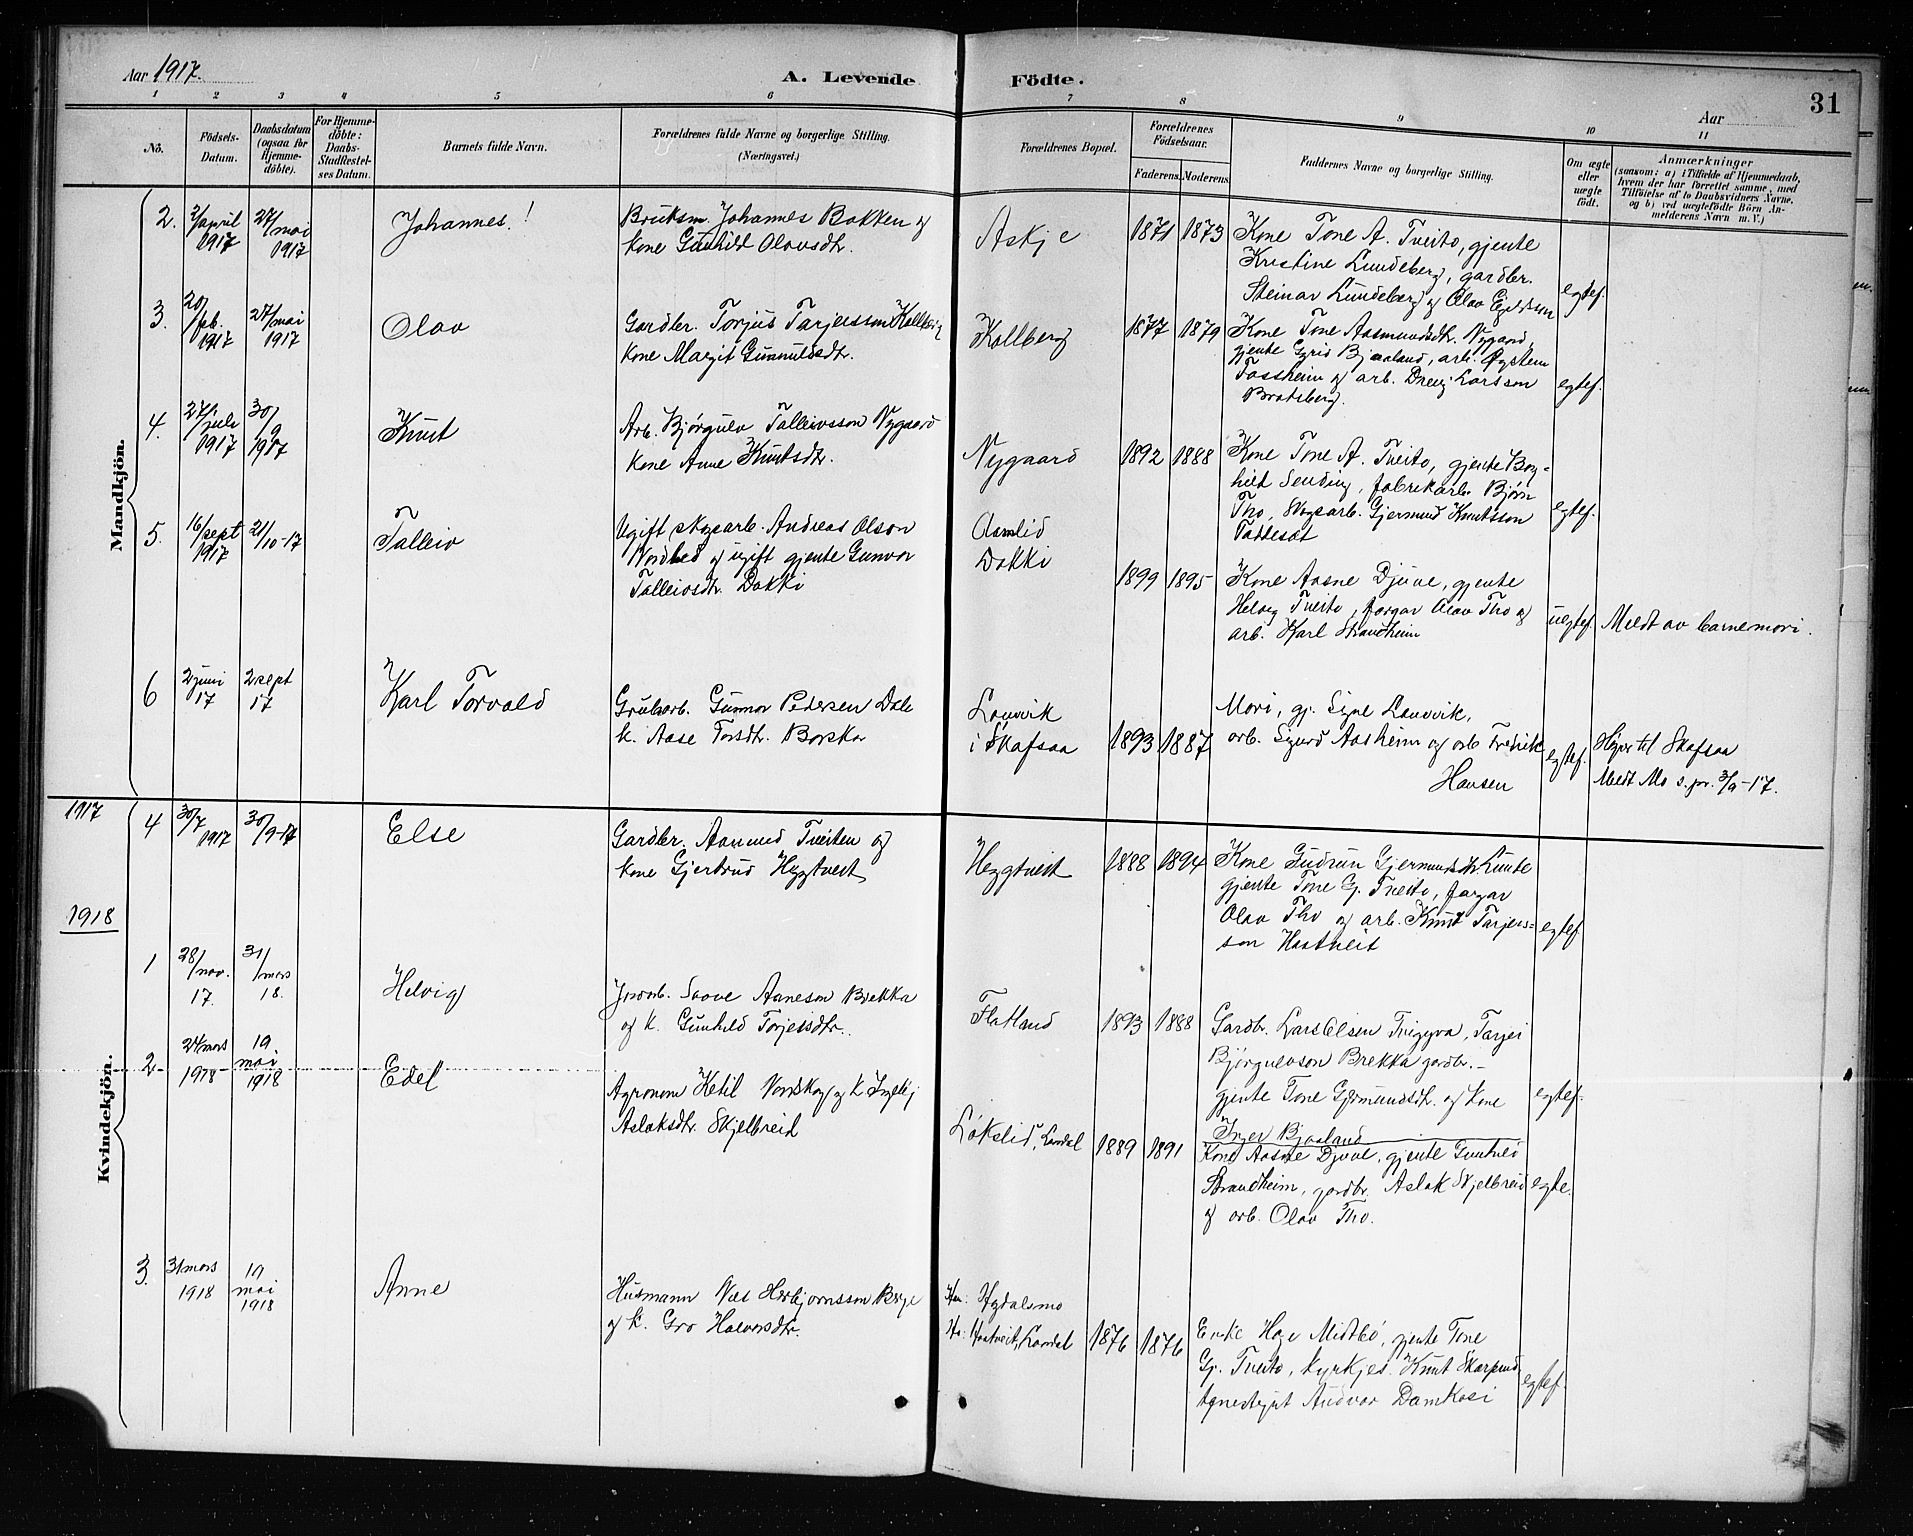 Aar 1917.
A. Levende Födte.
31
Aar
1 2 3 4 5 6 7 8 9 10 11
No.
Födsels-
Datum.
Daabsdatum
(ogsaa for
Hjemme-
döbte).
For Hjemme-
döbte:
Daabs-
Stadfestel-
ses Datum.
Barnets fulde Navn.
Forældrenes fulde Navne og borgerlige Stilling.
(Næringsvei.)
Forældrenes Bopæl.
Forældrenes
Födselsaar.
Faderens. Moderens.
Faddernes Navne og borgerlige Stilling.
Om ægte
eller
uægte
födt.
Anmærkninger
(saasom: a) i Tilfælde af Hjemmedaab,
hvem der har forrettet samme, med
Tilföielse af to Daabsvidners Navne,
og b) ved uægtefödte Börn An-
melderens Navn m. V.)
Mandkjön.
2.
2/april
1917
27/mai
1917
Johannes!
Bruksm. Johannes Bakken og
kone Gunhild Olavsdtr.
Askje
1871 1873
Kone Tone A. Tveito, gjente
Kristine Lundeberg, gardbr.
Steinar Lundeberg og Olav
egtef.
3.
20/
feb.
1917
27/mai
1917
Olav
Gardbr. Torjus Tarjeisson Kallberg
kone Margit Gunnulvsdtr.
Kallberg
1877 1879
Kone Tone Aasmundsdtr. Nygard,
gjente Gyrid Bjaaland, arb. Øystein
Tossheim og arb. Dreng Larsson
Bratsberg.
egtef.
4.
27/juli
1917
30/9
1917
Knut
Arb. Bjørgulv Talleivsson Nygaard
kone Anne Knutsdtr.
Nygaard
1892 1888
Kone Tone A. Tveito, gjente Bor-
hild Sending, fabrikarb. Bjørn
Tho, Skogsarb. Gjermund Knutsson
Tattesæt
egtef.
5.
16/sept
1917
21/10-17
Talleiv
Ugift skogsarb. Andreas Olson
Nordbø og ugift gjente Gunvor
Talleivsdtr. Dokki
Aamlid
Dokki
1899 1895
Kone Aasne Djuve, gjente
Helvig Tveito, fargar Olav Tho og
arb. Karl Strandheim
uegtef.
Meldt av barnemori.
6
2 juni
17
2 sept
17
Karl Torvald
Grubearb. Gunnar Pedersen Dale
k. Aase Torsdtr. Borska
Lauvvik
i Skafsaa
1893 1887
Mori, gj. Signe Lauvvik,
arb. Sigurd Aasheim og arb Fredrik
Hansen
egtef.
Høyrer til Skafsaa
Meldt Mo s.pr. 3/9-17.
1917
Kvindekjön.
4
30/7
1917
30/9-17
Else
Gardbr. Aanund Tveiten og
kone Gjertrud Heggtveit
Heggtveit
1888 1894
Kone Gudrun Gjermundsdtr. Lunde
gjente Tone G. Tveito, fargar
Olav Tho og arb. Knut Tarjeis-
son Haatveit
egtef
1918
1
28/nov.
17.
31/mars
18.
Helvig
Jordarb. Saave Aaneson Brekka
og k. Gunhild Torjeisdtr.
Flatland
1893 1888
Gardbr. Lars Olsen Trigyva, Tarjei
Bjørgulvson Brekka gardbr.
gjente Tone Gjermundsdtr. og kone
Inger Bjaaland
egtef.
2
24 mars
1918
19
mai
1918
Edel
Agronom Ketil Nordskog og k Ingebj
Aslaksdtr. Skjelbreid
Løkslid, Lardal
1889 1891
Kone Aasne Djuve, gjente Gunhild
Strandheim, gardbr. Aslak Skjelbreid
og arb. Olav Tho.
egte.
3.
31 mars
1918
19
mai
1918
Anne
Husmann Nils Herbjørnsson Berge
og k. Gro Halvorsdtr.
Han: Hydalsmo
Ho: Haatveit, Lardal
1876 1876
Enke Hæge Midtbø, gjente Tone
Gj. Tveito, kyrkjes. Knut Skarprud
Andvar Damkaasi
egtef.